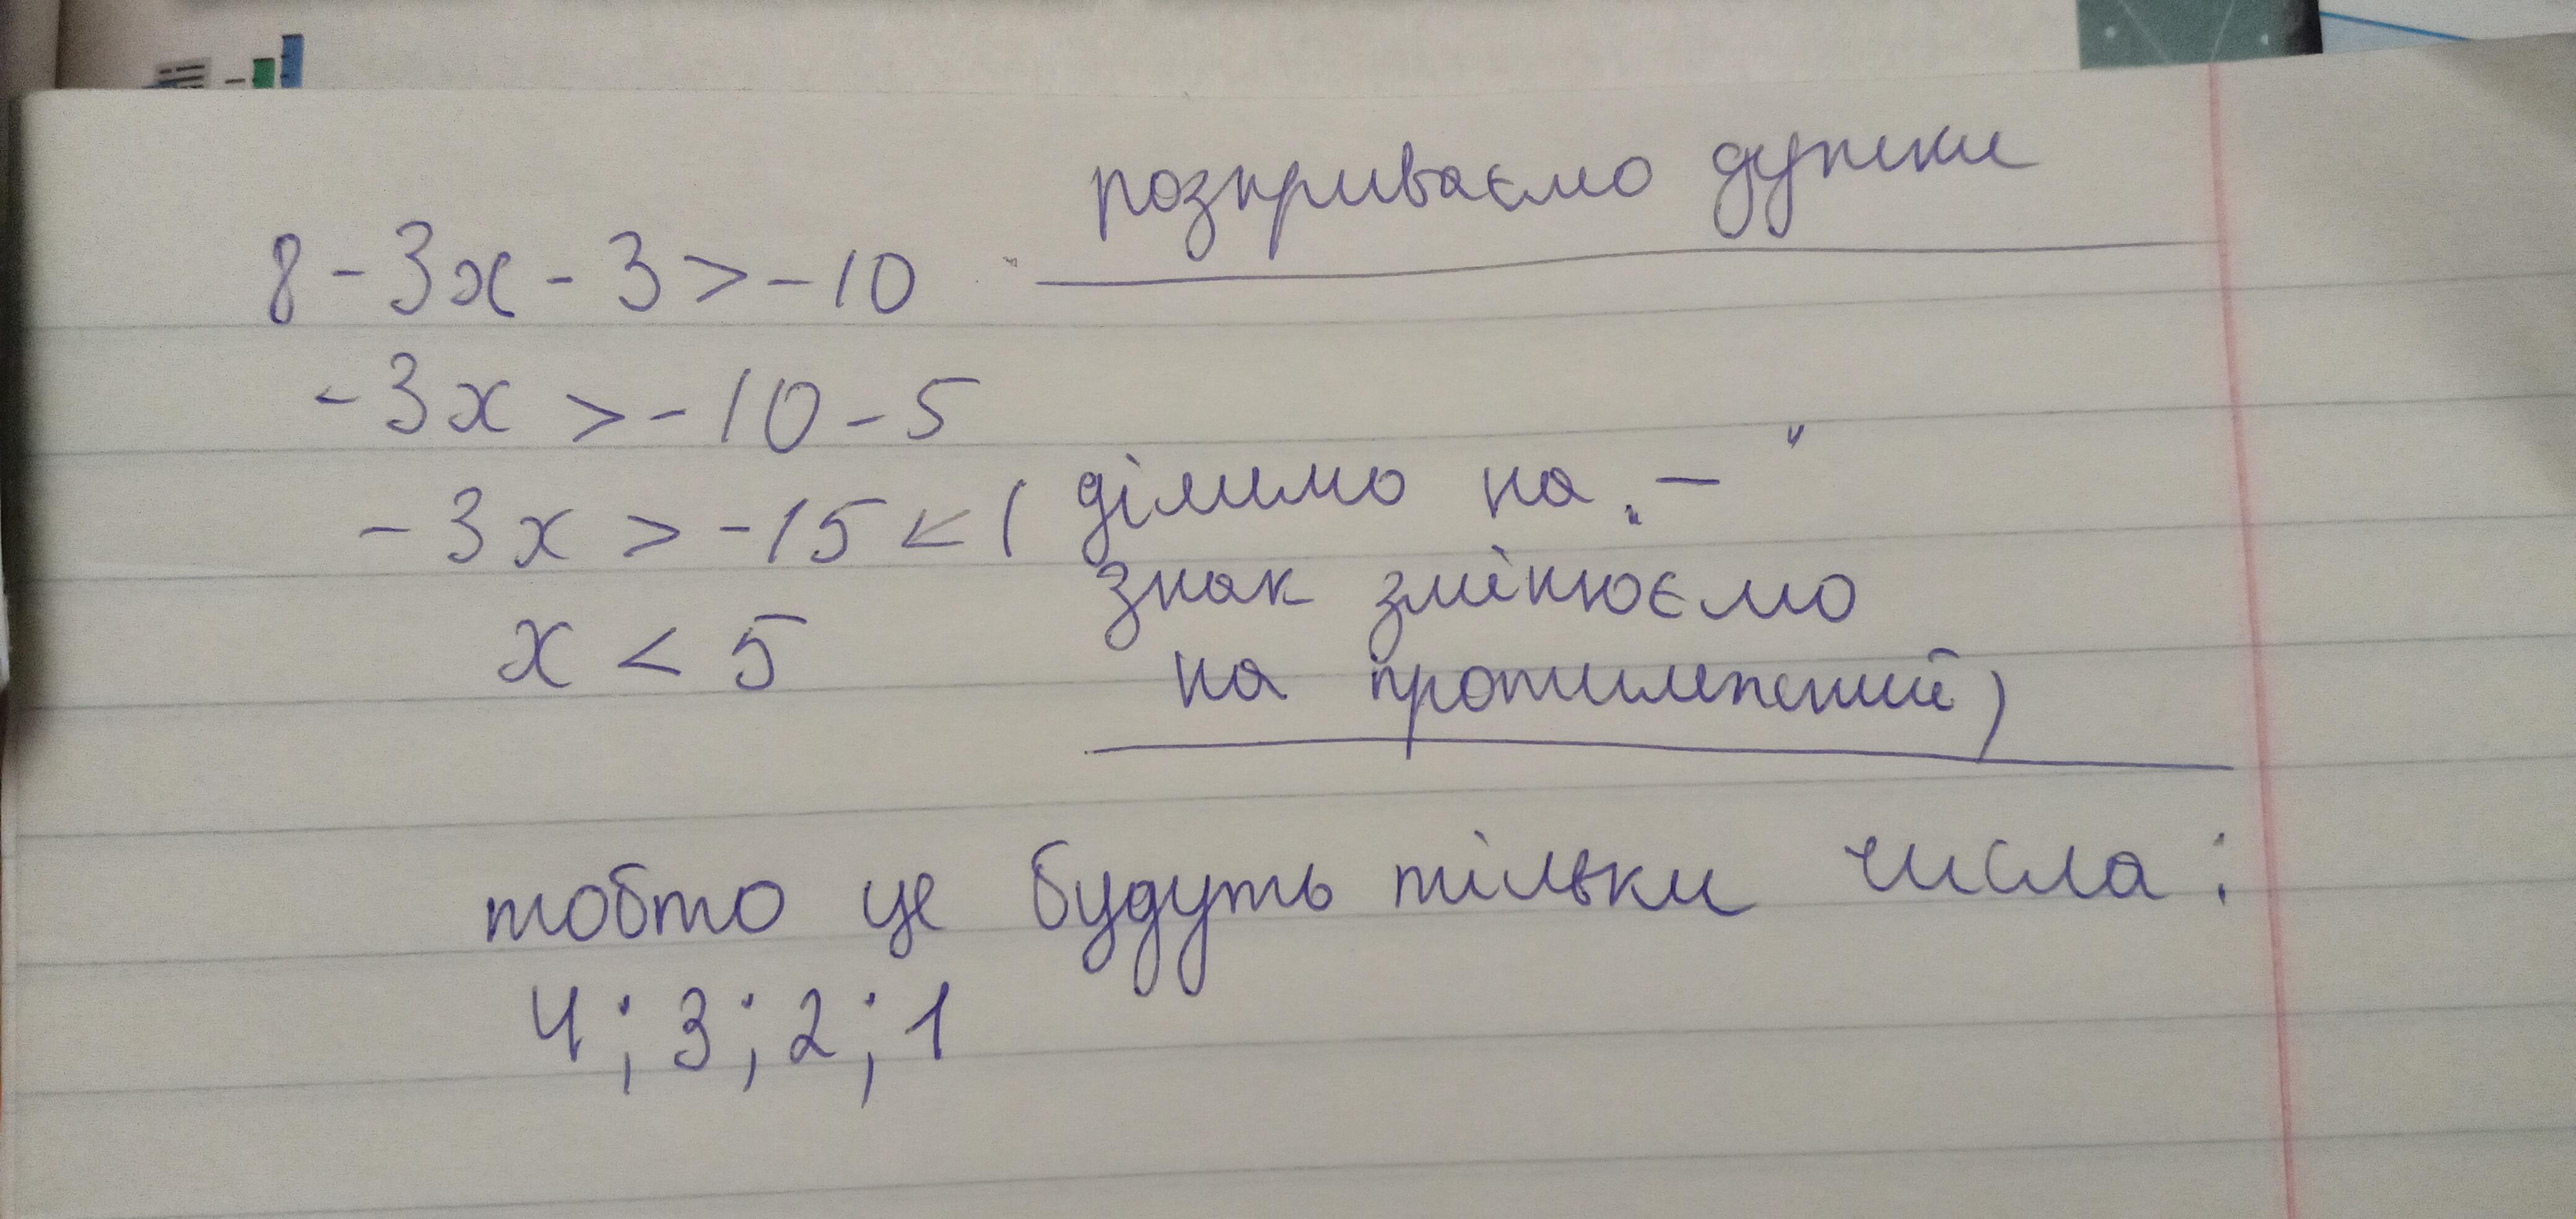 розкриваємо дужки
8 - 3x - 3 > -10
-3x > -10 - 5
-3x > -15 ← ( ділимо на „-"
знак змінюємо
x < 5
на протилежний)
тобто це будуть тільки числа:
4; 3; 2; 1